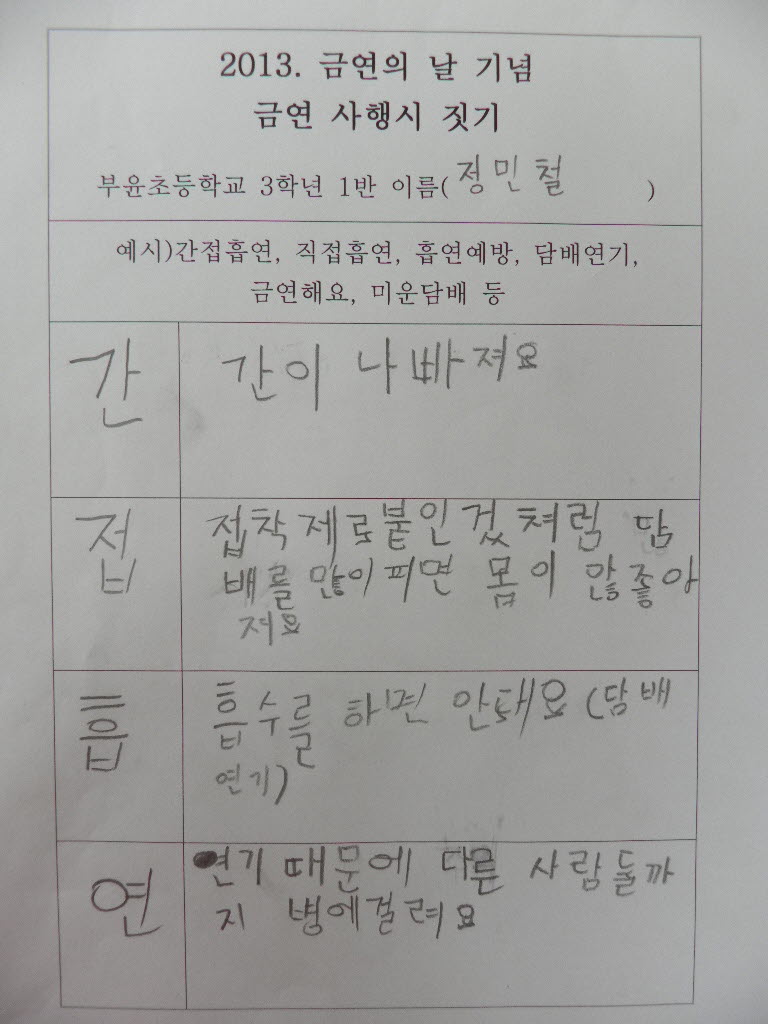 2013. 금연의 날 기념
금연 사행시 짓기
부윤초등학교 3학년 1반 이름(정민철 )
예시)간접흡연, 직접흡연, 흡연예방, 담배연기,
금연해요, 미운담배 등
간
간이 나빠져요
접
접착제로붙인겄쳐럼 담
배를 많이피면 몸이 않좋아
저요
흡
흡수를 하면 안돼요 (담배
연기)
연
연기 때문에 다른 사람들까
지 병에걸려요